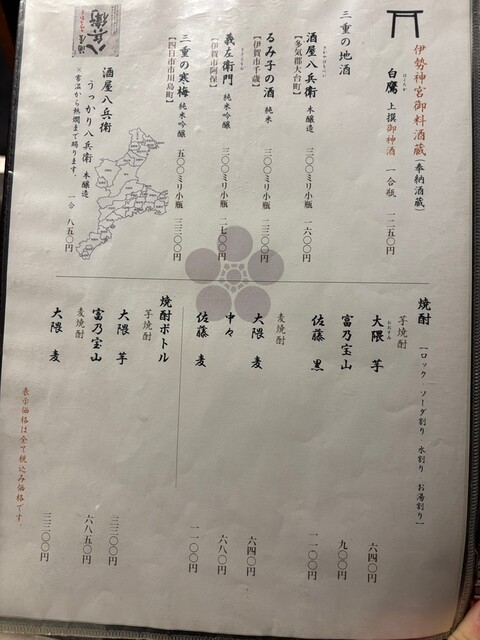 伊勢神宮御料酒蔵(奉納酒蔵)
はくたか
白鷹 上撰御神酒 一合瓶 一二五〇円
三重の地酒
さかやはちべい
酒屋八兵衛 本醸造 三〇〇ミリ小瓶 一六〇〇円
【多気郡大台町】
るみ子の酒 純米 三〇〇ミリ小瓶 二三〇〇円
【伊賀市千歳】
義左衛門 純米吟醸 三〇〇ミリ小瓶 二七〇〇円
【伊賀市阿保】
三重の寒梅 純米吟醸 五〇〇ミリ小瓶 三三〇〇円
【四日市市川島町】
八兵衛
酒屋八兵衛
うっかり八兵衛 本醸造 一合 八五〇円
※常温から熱燗まで賜ります。
焼酎 【ロック・ソーダ割り・水割り・お湯割り】
芋焼酎
おおすみ
大隈 芋 六四〇円
富乃宝山 九〇〇円
佐藤 黒 一一〇〇円
麦焼酎
大隈 麦 六四〇円
中々 六八〇円
佐藤 麦 一一〇〇円
焼酎ボトル
芋焼酎
大隈 芋 三三〇〇円
富乃宝山 六八五〇円
麦焼酎
大隈 麦 三三〇〇円
表示価格は全て税込み価格です。